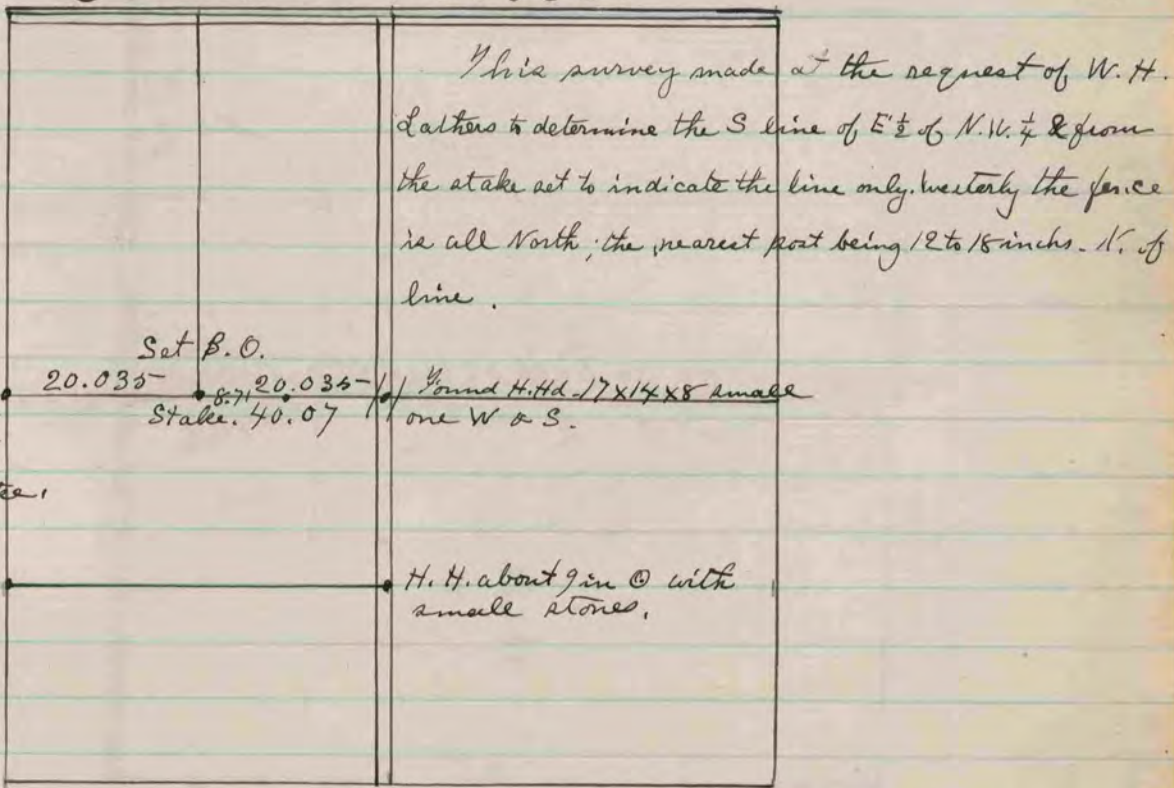 This survey made at the request of W. H.
Lathers to determine the S line of E ½ of N.W. ¼ & from
the stake set to indicate the line only. Westerly the fence
is all North; the nearest post being 12 to 18 inchs. N. of
line.
Set B.O.
20.035 8.71 20.035 Found H.Hd. 17x14x8 small
Stake. 40.07 one W & S.
H. H. about 9 in ⊙ with
small stones.